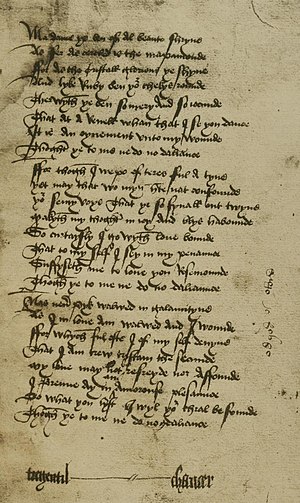 Ma dame ye ben of al beaute shryne
As fer as cercled is the mapamounde
For as the cristall glorious ye shyne
And lyke Ruby ben yor chekys rounde
Therwyth ye ben so mery and so iocunde
That at a Reuell whan that I se you dance
It is an oynement vnto my wounde
Thoght ye to me ne do no daliance
For thogh I wepe of teres ful a tyne
Yet may that wo myn herte nat confounde
Yor semy voys that ye so smal out twyne
Makyth my thoght in ioy and blys habounde
So curtaysly I go wyth loue bounde
That to my self I sey in my penaunce
Suffyseth me to loue you Rosemounde
Thogh ye to me ne do no daliaunce
Nas neuer pyk walwed in galauntyne
As I in loue am walwed and I wounde
For whych ful ofte I of my self deuyne
That I am trew tristam the secunde
My loue may not refreyde nor affounde
I brenne ay in amorouse plesaunce
Do what you lyst I wyl yor thral be founde
Thogh ye to me ne do no daliance
tregentil chaucer